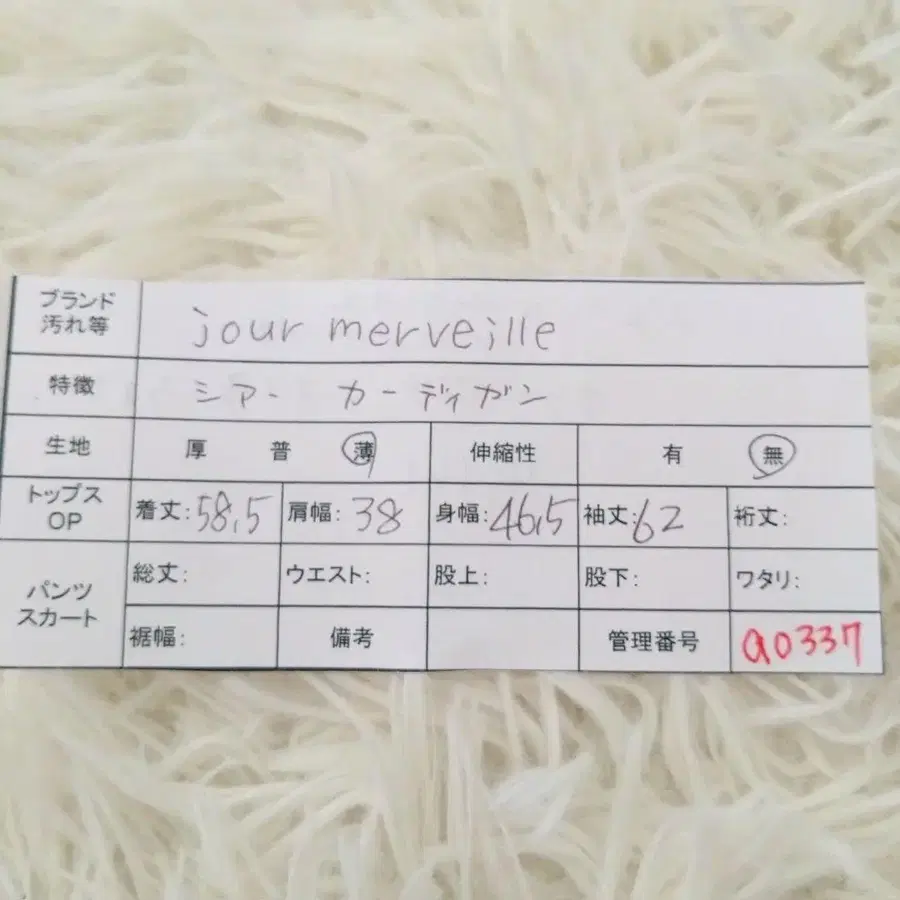 ブランド
汚れ等 jour merveille
特徴 シアー カーディガン
生地 厚 普 薄 伸縮性 有 無
トップス
OP 着丈:58.5 肩幅:38 身幅:46.5 袖丈:62 裄丈:
パンツ
スカート 総丈: ウエスト: 股上: 股下: ワタリ:
裾幅: 備考 管理番号 a0337